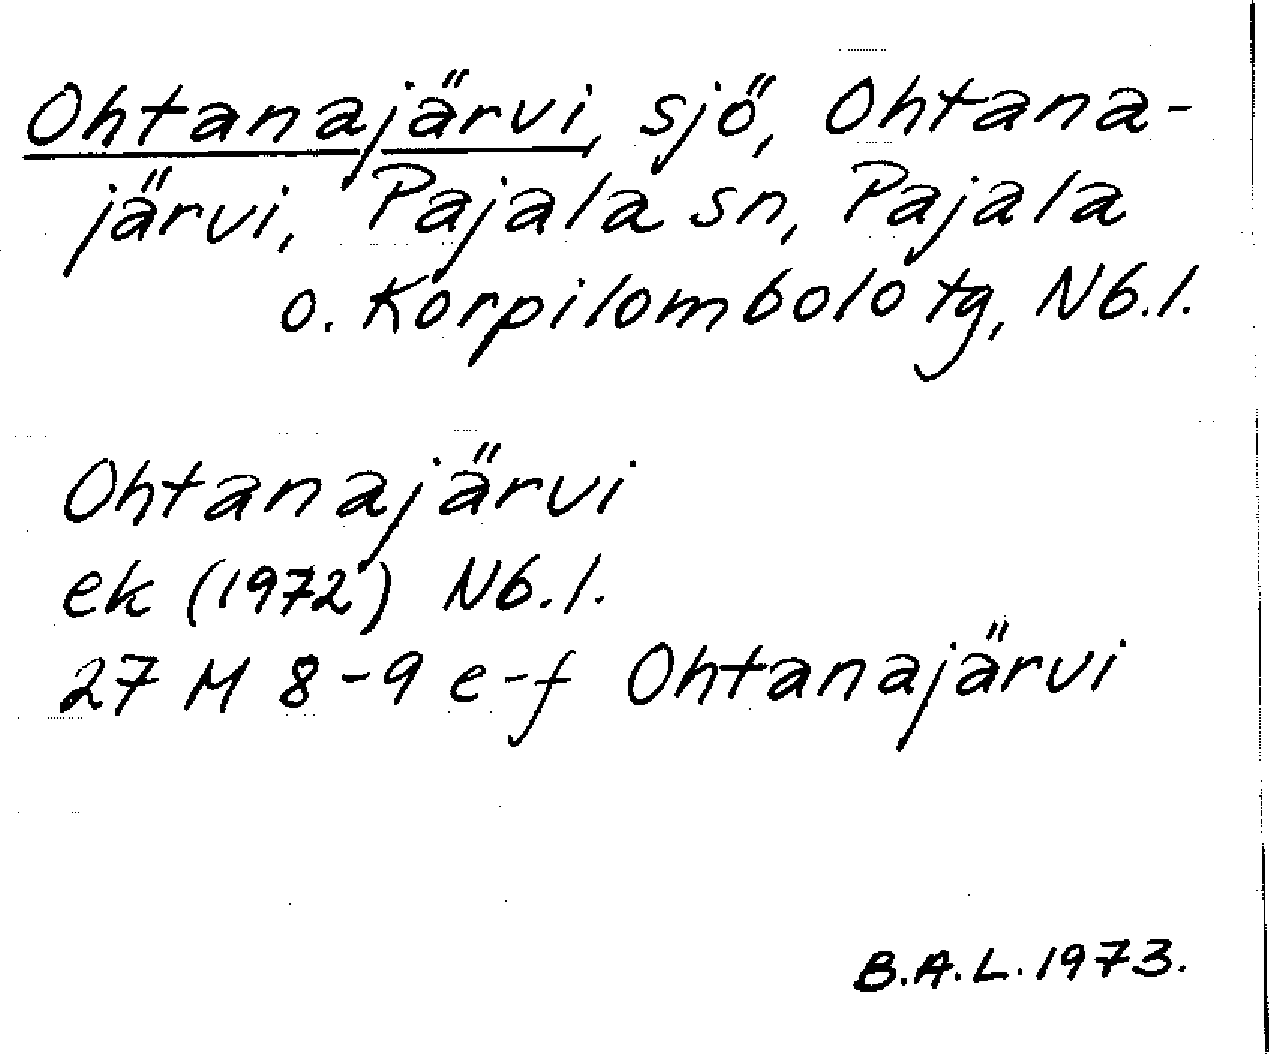 Ohtanajärvi, sjö, Ohtana-
järvi, Pajala sn, Pajala
o. Korpilombolo tg, Nb.l.
Ohtanajärvi
ek (1972) Nb.l.
27 M 8-9 e-f Ohtanajärvi
B.A.L. 1973.